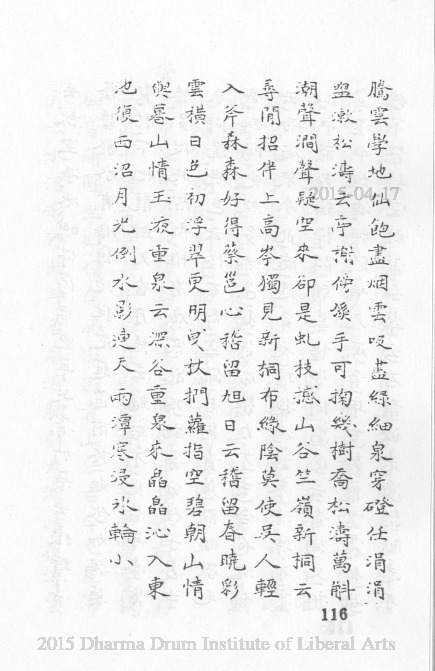 騰雲學地仙飽盡烟雲吸盡綠細泉穿磴任涓涓
盥漱松濤云亭榭傍溪手可掬幾樹喬松濤萬斛
潮聲澗聲疑空來卻是虬枝撼山谷竺嶺新桐云
尋閒招伴上高岑獨見新桐布綠陰莫使吳人輕
入斧森森好得蔡邕心稽留旭日云稽留春曉彩
雲横日色初浮翠更明曳杖捫蘿指空碧朝山情
與暮山情玉液重泉云深谷重泉來晶晶沁入東
池復西沼月光倒水影連天雨潭寒浸氷輪小
116
2015-04-17
2015 Dharma Drum Institute of Liberal Arts